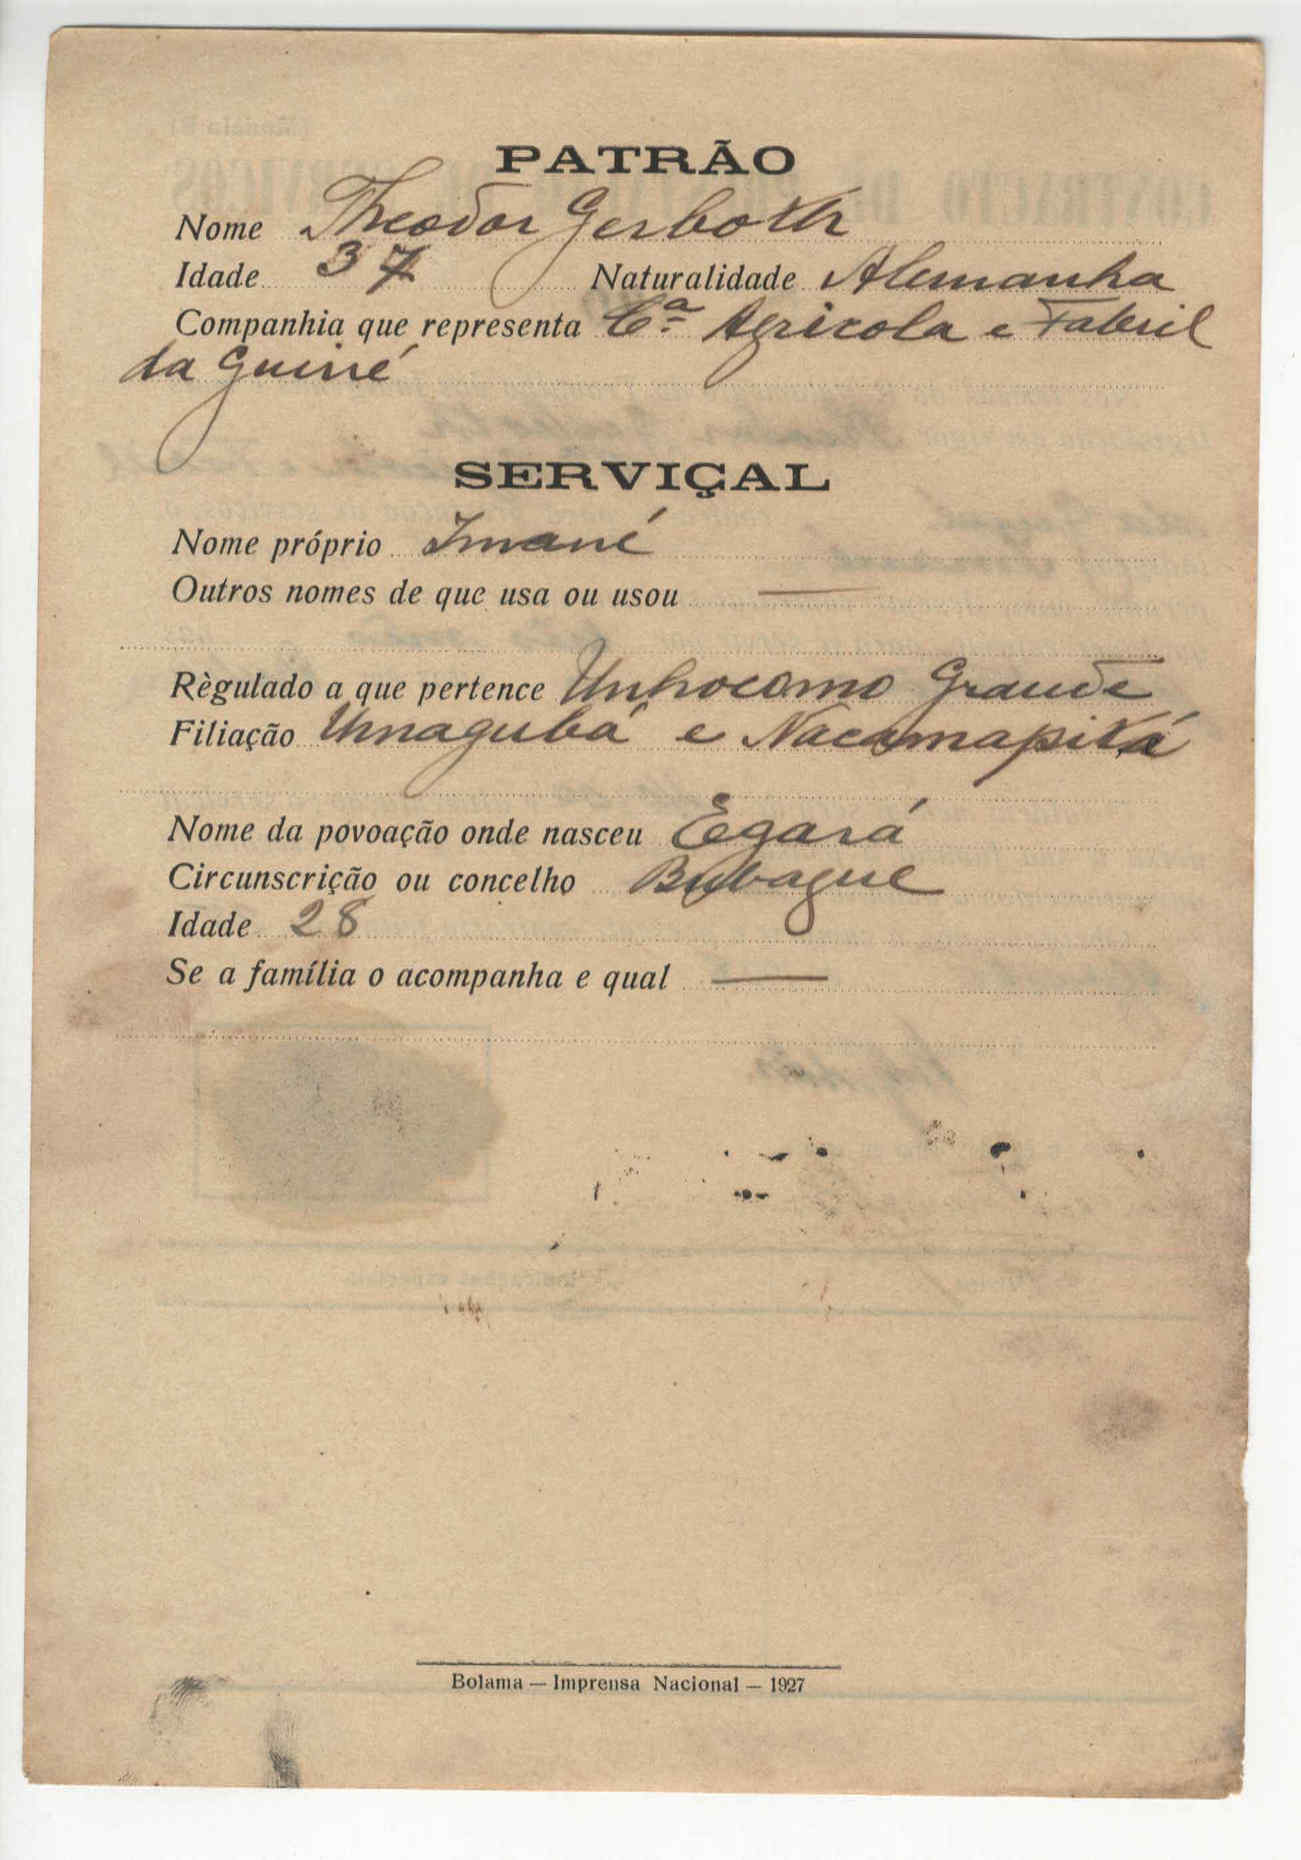 PATRÃO
Nome Theodor Gerboth
Idade 37 Naturalidade Alemanha
Companhia que representa Cª Agricola e Fabril
da Guiné
SERVIÇAL
Nome próprio Imané
Outros nomes de que usa ou usou —
Règulado a que pertence Unhocomo Grande
Filiação Umagubá e Nacamapitá
Nome da povoação onde nasceu Egará
Circunscrição ou concelho Bubaque
Idade 28
Se a família o acompanha e qual —
Bolama — Imprensa Nacional — 1927